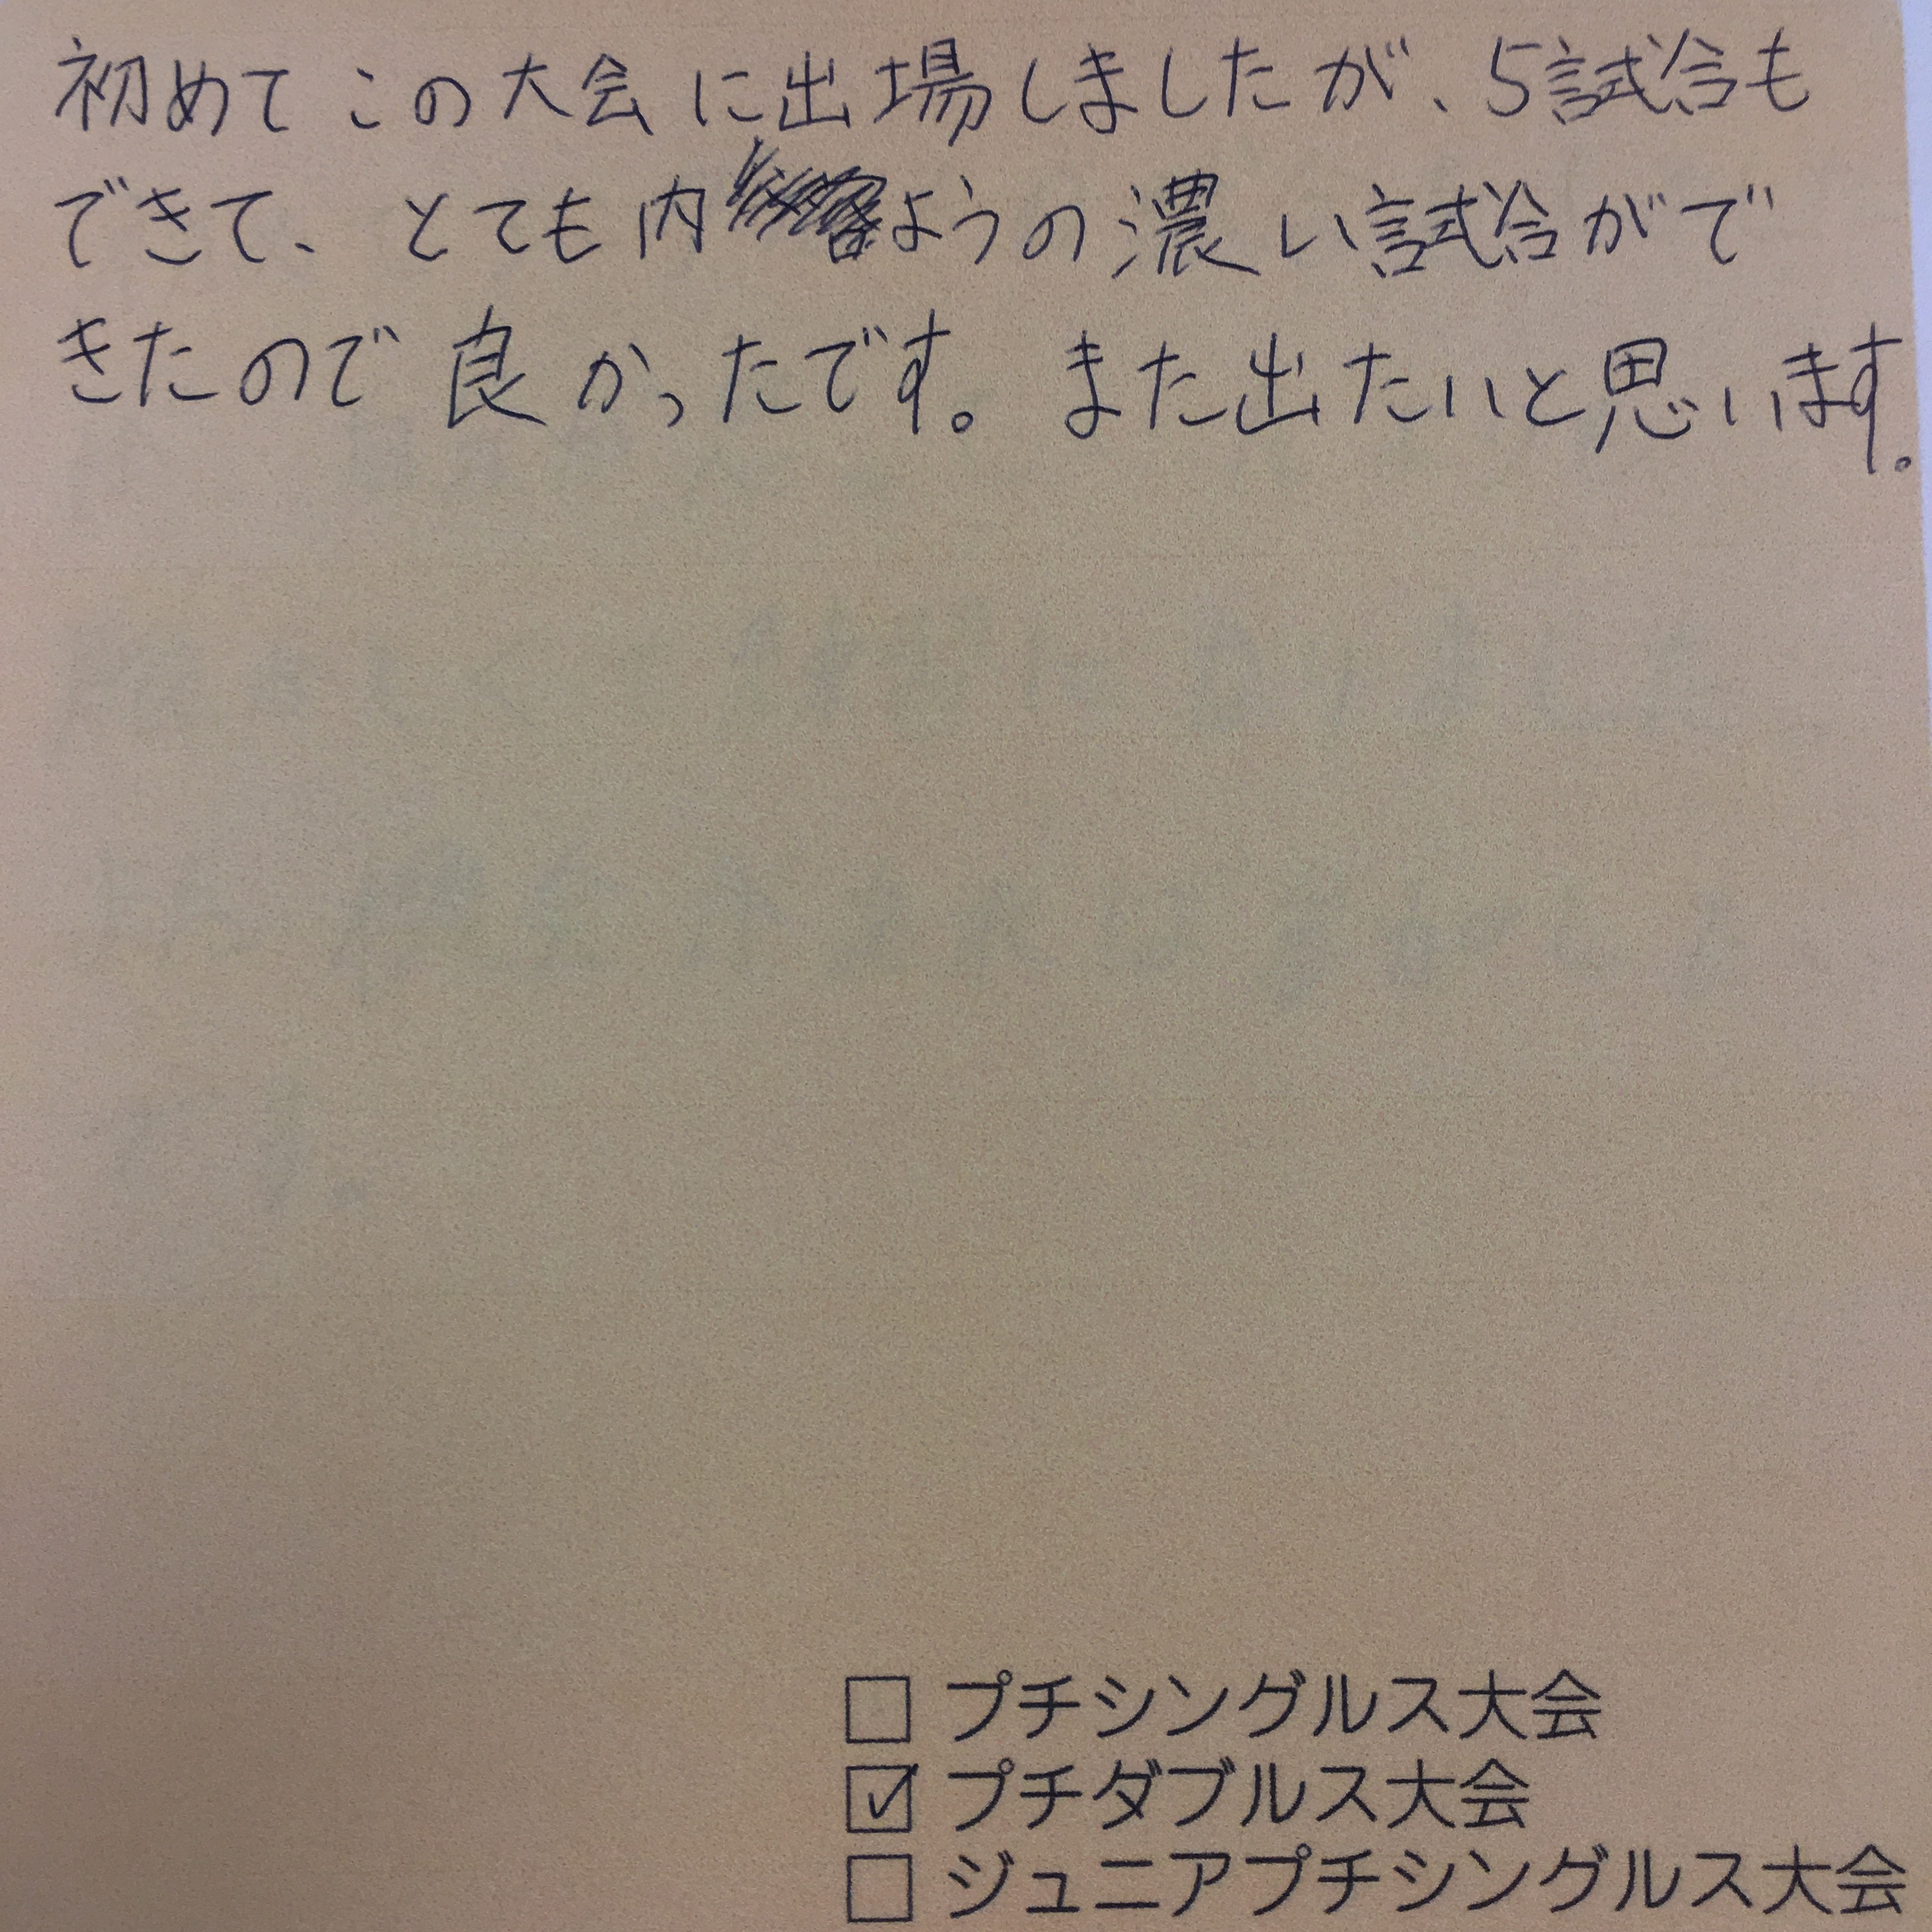 初めてこの大会に出場しましたが、5試合も
できて、とても内ようの濃い試合がで
きたので良かったです。また出たいと思います。
□ プチシングルス大会
☑ プチダブルス大会
□ ジュニアプチシングルス大会